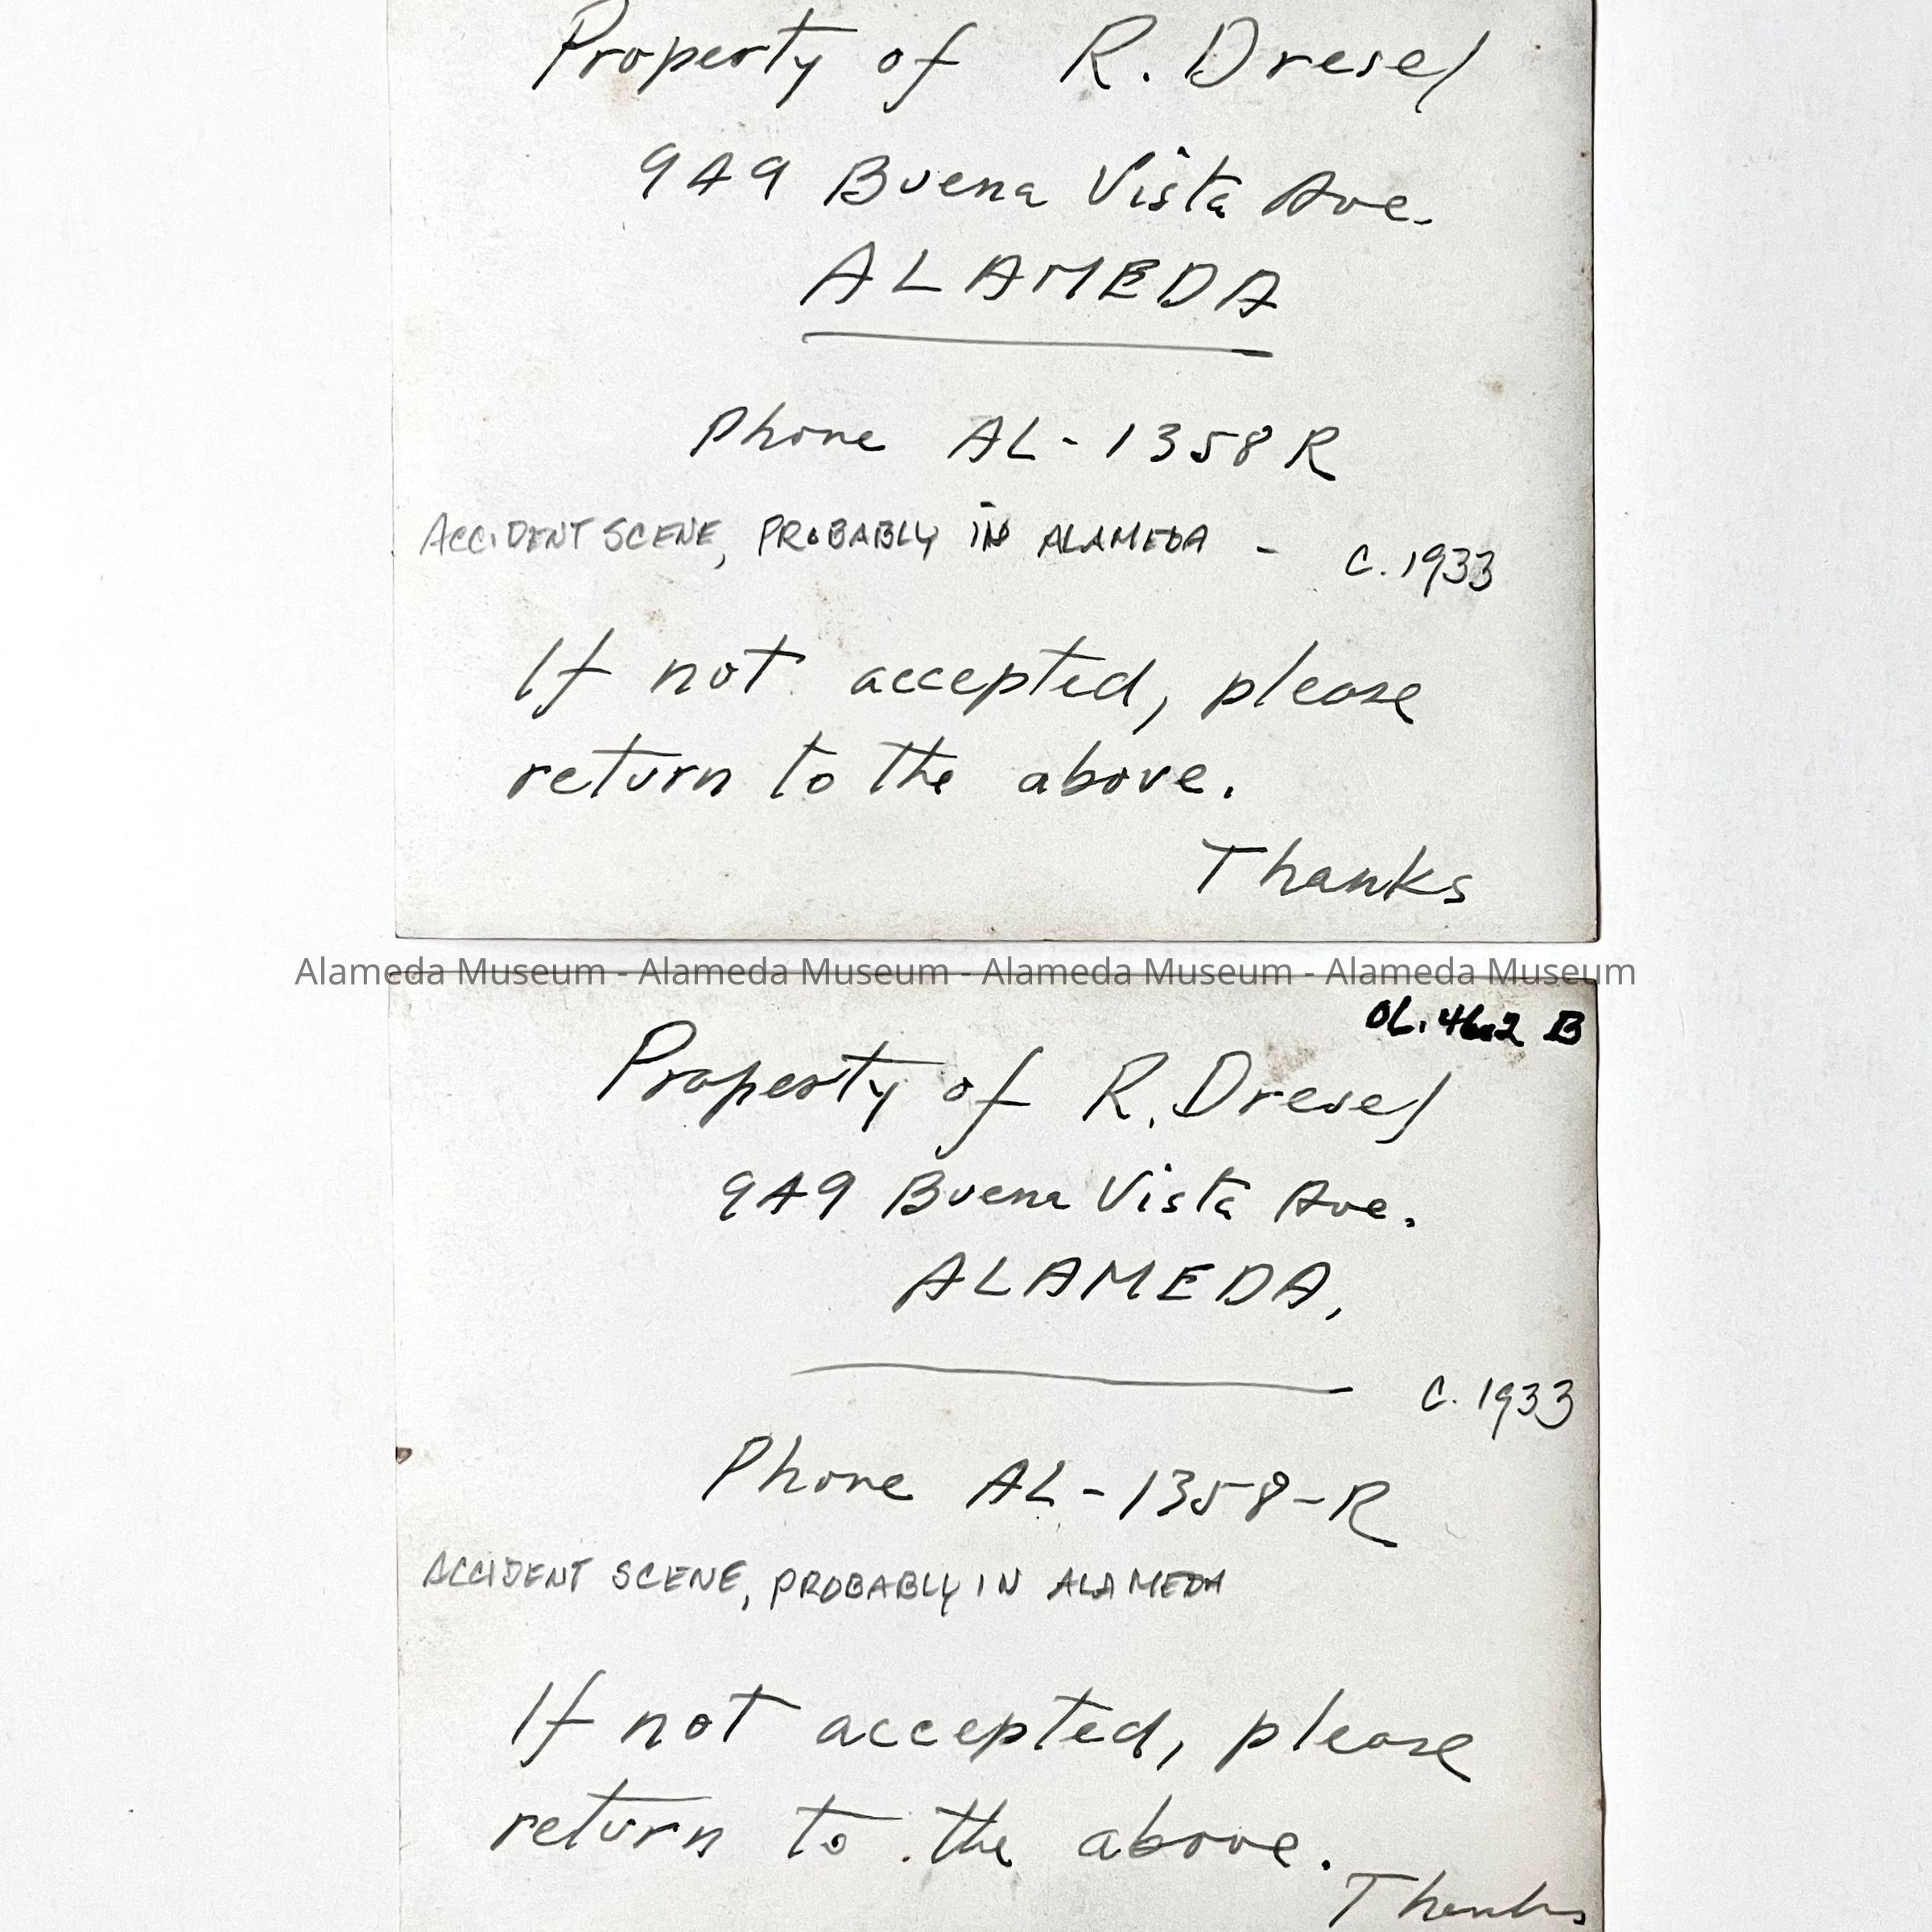 Property of R. Dresel
949 Buena Vista Ave.
ALAMEDA
Phone AL-1358R
ACCIDENT SCENE, PROBABLY IN ALAMEDA - C. 1933
If not accepted, please
return to the above.
Thanks
Alameda Museum - Alameda Museum - Alameda Museum - Alameda Museum
B
Property of R. Dresel
949 Buena Vista Ave.
ALAMEDA,
C. 1933
Phone AL-1358-R
ACCIDENT SCENE, PROBABLY IN ALAMEDA
If not accepted, please
return to the above.
Thanks